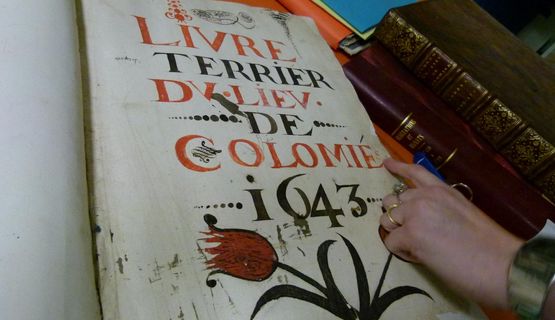 LIVRE
TERRIER
DV·LIEV·
DE
COLOMIÉ
1643